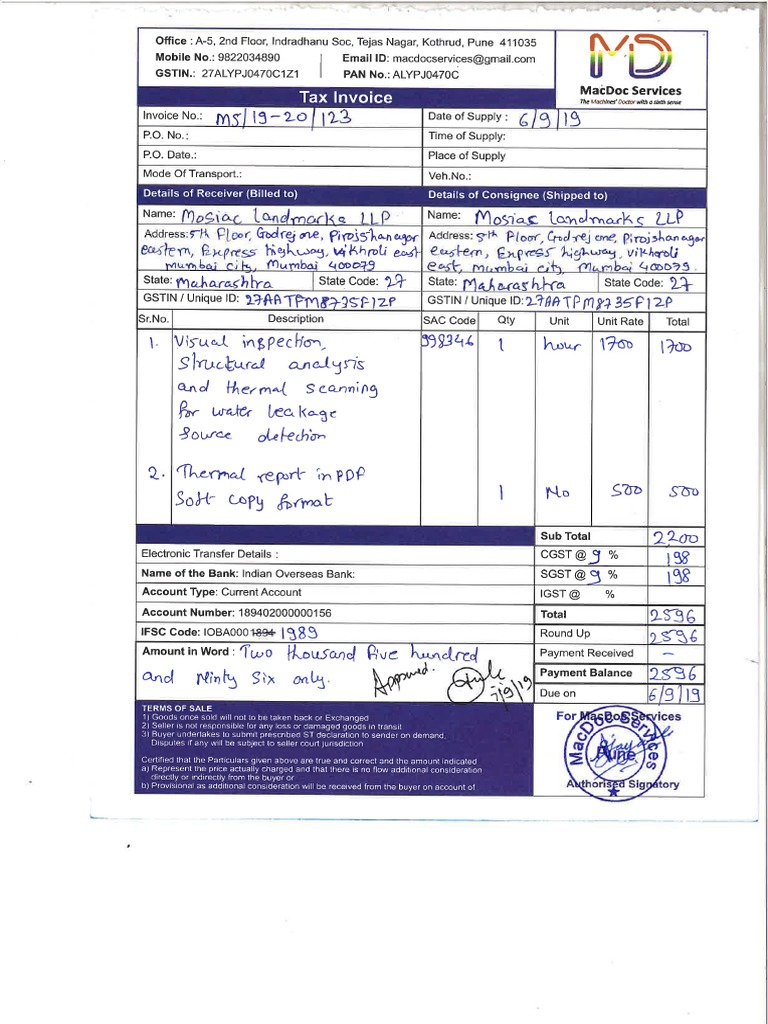 Office : A-5, 2nd Floor, Indradhanu Soc, Tejas Nagar, Kothrud, Pune 411035
Mobile No.: 9822034890 Email ID: macdocservices@gmail.com
GSTIN.: 27ALYPJ0470C1Z1 PAN No.: ALYPJ0470C
MD
MacDoc Services
The Machines' Doctor with a sixth sense
Tax Invoice
Invoice No.: MS/19-20/123 Date of Supply : 6/9/19
P.O. No.: Time of Supply:
P.O. Date.: Place of Supply
Mode Of Transport.: Veh.No.:
Details of Receiver (Billed to) Details of Consignee (Shipped to)
Name: Mosiac Landmarks LLP Name: Mosiac Landmarks LLP
Address: 5th Floor, Godrej one, Pirojshanagar Address: 5th Floor, Godrej one, Pirojshanagar
eastern, Express highway, vikhroli east eastern, Express highway, vikhroli
mumbai city, Mumbai 400079 east, mumbai city, Mumbai 400079.
State: Maharashtra State Code: 27 State: Maharashtra State Code: 27
GSTIN / Unique ID: 27AATFM8735F1ZP GSTIN / Unique ID: 27AATFM8735F1ZP
Sr.No. Description SAC Code Qty Unit Unit Rate Total
1. Visual inspection, 998346 1 hour 1700 1700
Structural analysis
and thermal scanning
for water leakage
source detection
2. Thermal report in PDF
Soft copy format 1 No 500 500
Sub Total 2200
Electronic Transfer Details : CGST @ 9 % 198
Name of the Bank: Indian Overseas Bank: SGST @ 9 % 198
Account Type: Current Account IGST @ %
Account Number: 189402000000156 Total 2596
IFSC Code: IOBA0001894 1989 Round Up 2596
Amount in Word : Two thousand five hundred Payment Received –
and Ninty Six only. Payment Balance 2596
Approved. 7/9/19 Due on 6/9/19
TERMS OF SALE
1) Goods once sold will not to be taken back or Exchanged
2) Seller is not responsible for any loss or damaged goods in transit
3) Buyer undertakes to submit prescribed ST declaration to sender on demand,
Disputes if any will be subject to seller court jurisdiction
Certified that the Particulars given above are true and correct and the amount indicated
a) Represent the price actually charged and that there is no flow additional consideration
directly or indirectly from the buyer or
b) Provisional as additional consideration will be received from the buyer on account of
For MacDoc Services
MacDoc Services
Pune
Authorised Signatory